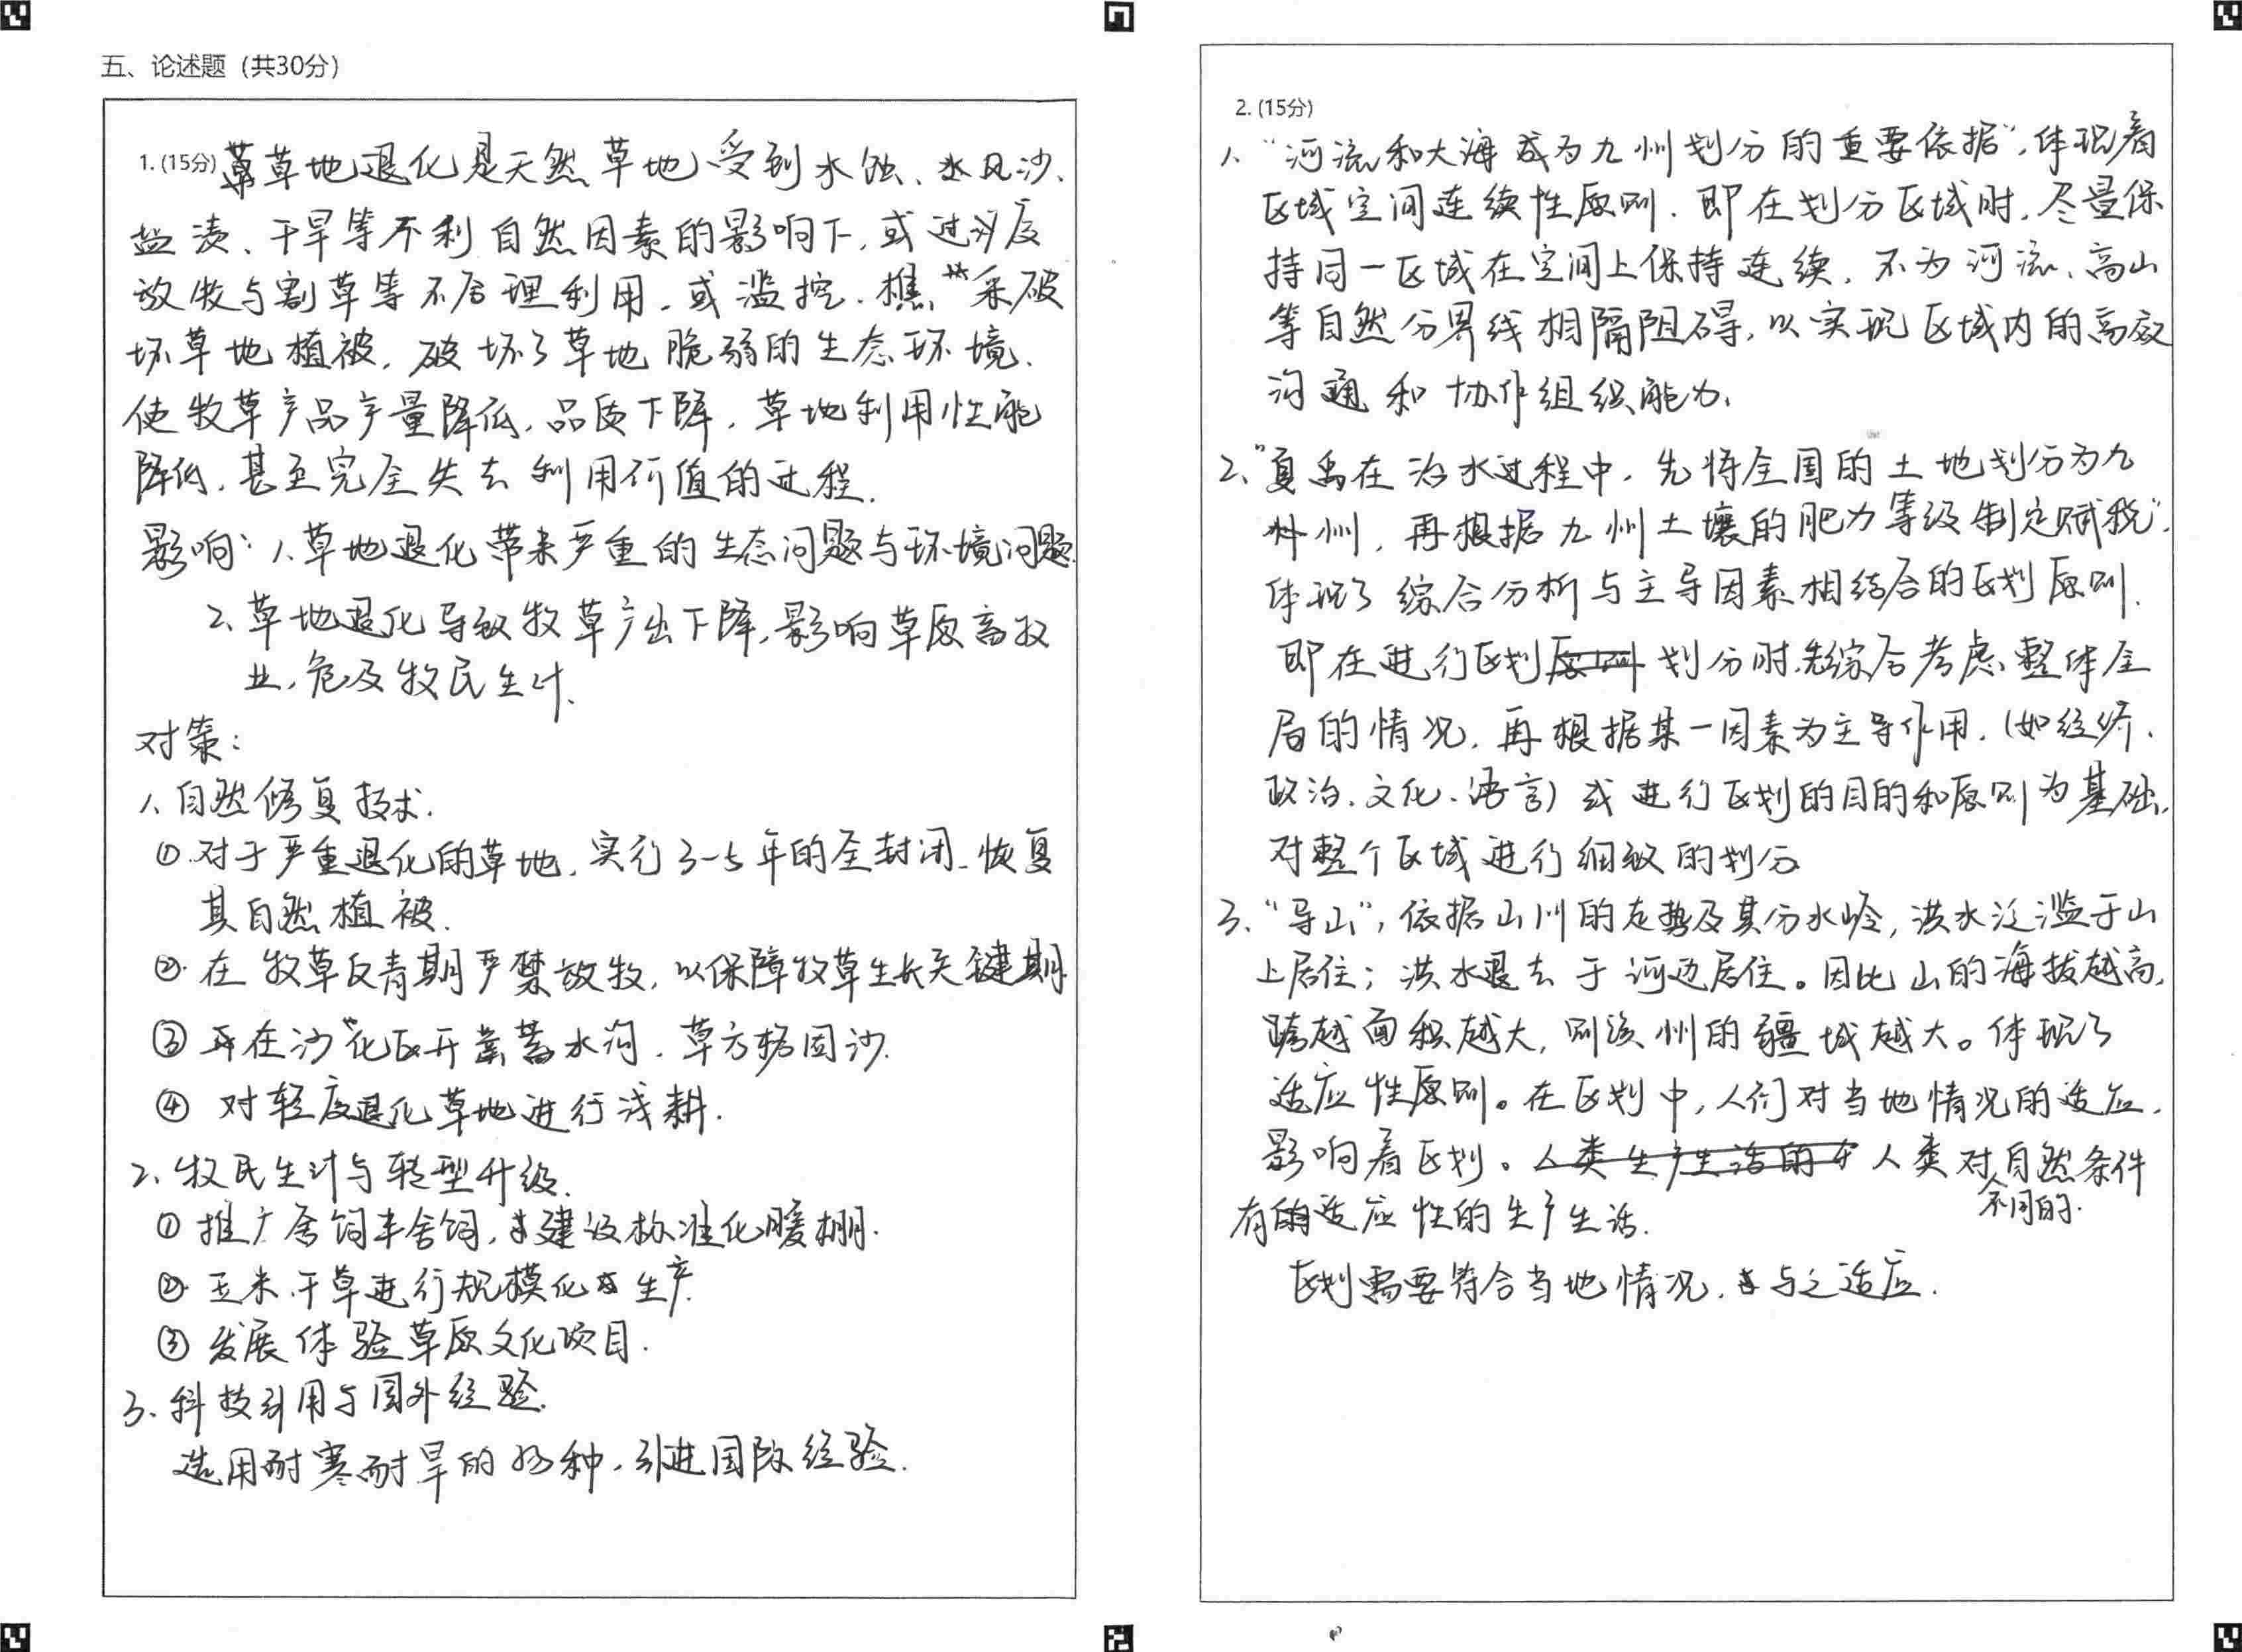 五、论述题（共30分）
1. (15分) 草地退化是天然草地受到水蚀、风沙、
盐渍、干旱等不利自然因素的影响下，或过度
放牧与割草等不合理利用，或滥挖、樵采破
坏草地植被，破坏了草地脆弱的生态环境，
使牧草产品产量降低，品质下降，草地利用性能
降低，甚至完全失去利用价值的过程.
影响：1、草地退化带来严重的生态问题与环境问题.
2、草地退化导致牧草产出下降，影响草原畜牧
业，危及牧民生计.
对策：
1、自然修复技术.
①对于严重退化的草地，实行3-5年的全封闭，恢复
其自然植被.
②在牧草反青期严禁放牧，以保障牧草生长关键期
③在沙化区开蓄水沟，草方格固沙.
④对轻度退化草地进行浅耕.
2、牧民生计与转型升级.
①推广舍饲半舍饲，建设标准化暖棚.
②玉米、干草进行规模化生产.
③发展体验草原文化项目.
3、科技引用与国外经验.
选用耐寒耐旱的品种，引进国际经验.
2. (15分)
1、“河流和大海成为九州划分的重要依据”，体现着
区域空间连续性原则，即在划分区域时，尽量保
持同一区域在空间上保持连续，不为河流、高山
等自然分界线相隔阻碍，以实现区域内的高效
沟通和协作组织能力.
2、“夏禹在治水过程中，先将全国的土地划分为九
州，再根据九州土壤的肥力等级制定赋税”，
体现了综合分析与主导因素相结合的区划原则.
即在进行区划划分时，先综合考虑整体全
局的情况，再根据某一因素为主导作用，（如经济、
政治、文化、语言）或进行区划的目的和原则为基础，
对整个区域进行细致的划分
3、“导山”，依据山川的走势及其分水岭，洪水泛滥于山
上居住；洪水退去于河边居住。因此山的海拔越高，
跨越面积越大，则该州的疆域越大。体现了
适应性原则。在区划中，人们对当地情况的适应，
影响着区划。人类对不同的自然条件
有适应性的生产生活.
区划需要符合当地情况，与之适应.